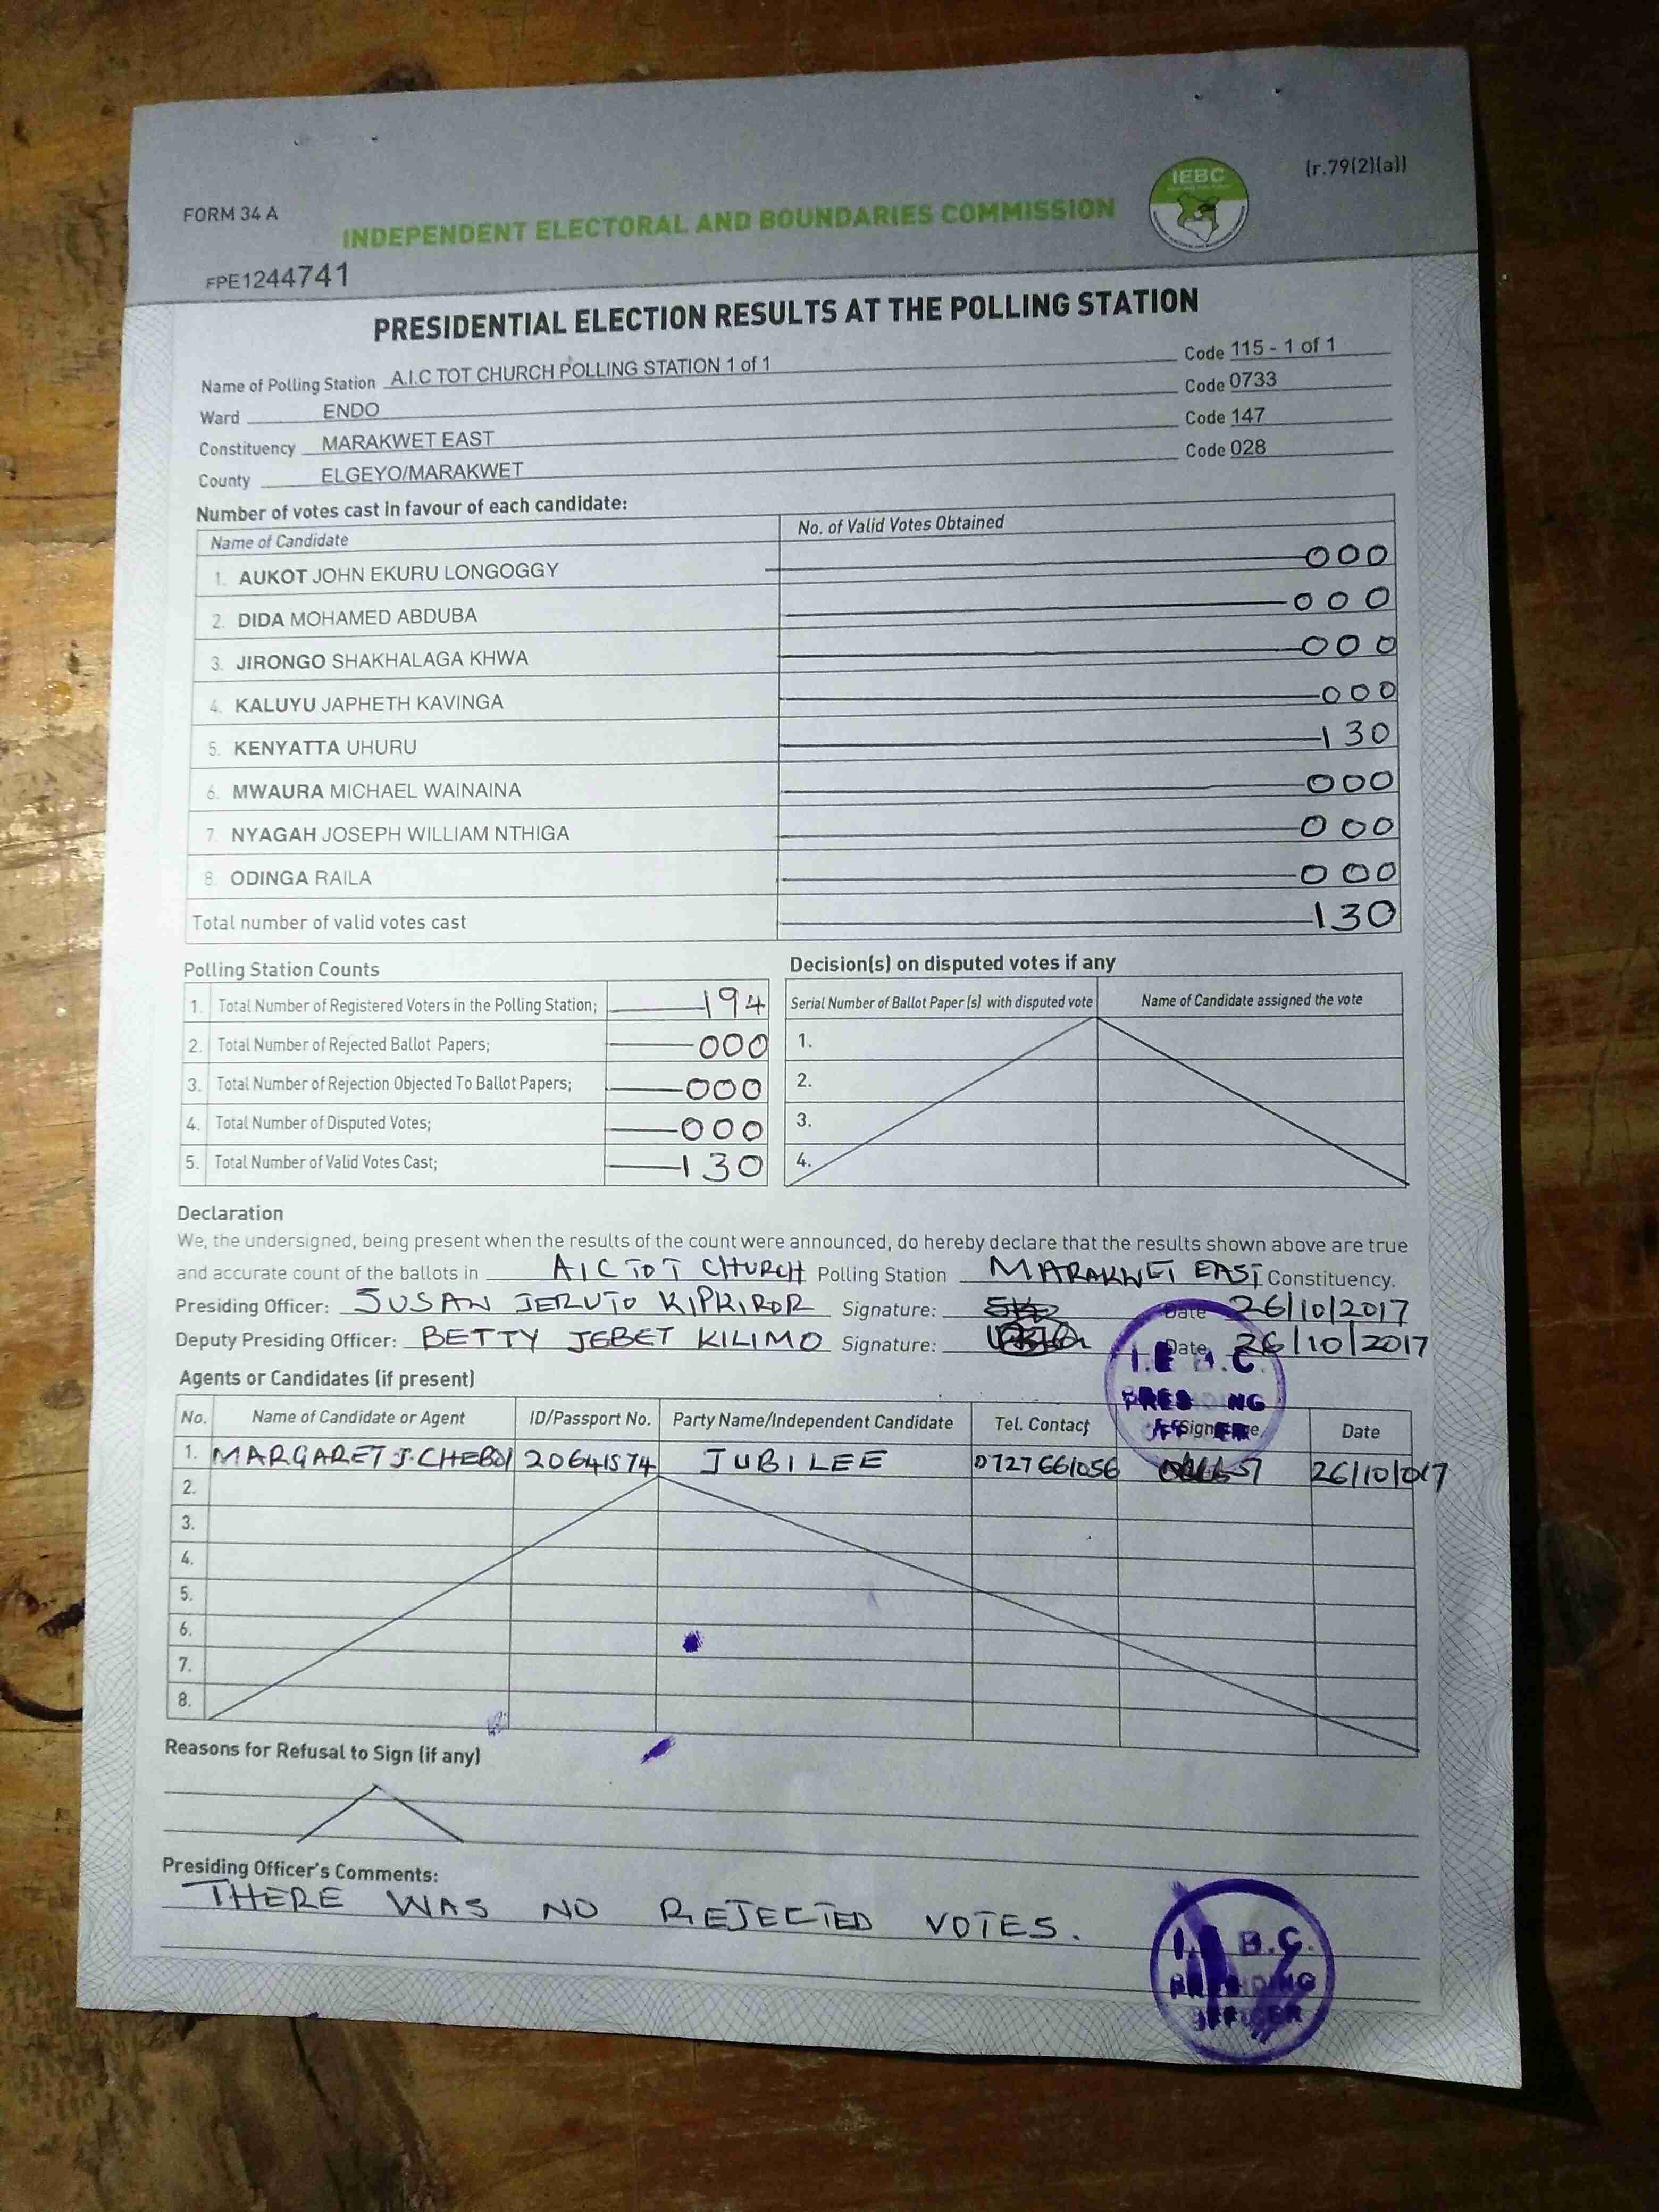 (r.79(2)(a))
FORM 34 A
INDEPENDENT ELECTORAL AND BOUNDARIES COMMISSION
IEBC
FPE1244741
PRESIDENTIAL ELECTION RESULTS AT THE POLLING STATION
Name of Polling Station A.I.C TOT CHURCH POLLING STATION 1 of 1 Code 115 - 1 of 1
Ward ENDO Code 0733
Constituency MARAKWET EAST Code 147
County ELGEYO/MARAKWET Code 028
Number of votes cast in favour of each candidate:
Name of Candidate No. of Valid Votes Obtained
1. AUKOT JOHN EKURU LONGOGGY 000
2. DIDA MOHAMED ABDUBA 000
3. JIRONGO SHAKHALAGA KHWA 000
4. KALUYU JAPHETH KAVINGA 000
5. KENYATTA UHURU 130
6. MWAURA MICHAEL WAINAINA 000
7. NYAGAH JOSEPH WILLIAM NTHIGA 000
8. ODINGA RAILA 000
Total number of valid votes cast 130
Polling Station Counts
1. Total Number of Registered Voters in the Polling Station; 194
2. Total Number of Rejected Ballot Papers; 000
3. Total Number of Rejection Objected To Ballot Papers; 000
4. Total Number of Disputed Votes; 000
5. Total Number of Valid Votes Cast; 130
Decision(s) on disputed votes if any
Serial Number of Ballot Paper (s) with disputed vote Name of Candidate assigned the vote
1.
2.
3.
4.
Declaration
We, the undersigned, being present when the results of the count were announced, do hereby declare that the results shown above are true
and accurate count of the ballots in AIC TOT CHURCH Polling Station MARAKWET EAST Constituency.
Presiding Officer: SUSAN JERUTO KIPKIROR Signature: Date 26/10/2017
Deputy Presiding Officer: BETTY JEBET KILIMO Signature: Date 26/10/2017
I.E.B.C.
PRESIDING
OFFICER
Agents or Candidates (if present)
No. Name of Candidate or Agent ID/Passport No. Party Name/Independent Candidate Tel. Contact Signature Date
1. MARGARET J. CHEBOI 20641574 JUBILEE 0727661056 26/10/017
2.
3.
4.
5.
6.
7.
8.
Reasons for Refusal to Sign (if any)
Presiding Officer's Comments:
THERE WAS NO REJECTED VOTES.
I.E.B.C.
PRESIDING
OFFICER